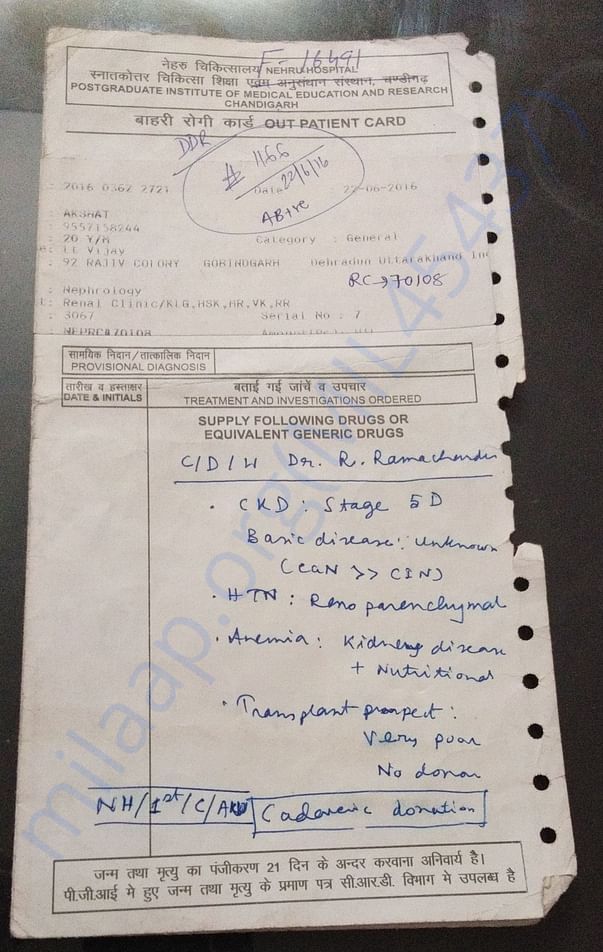 F-16491
नेहरु चिकित्सालय/ NEHRU HOSPITAL
स्नातकोत्तर चिकित्सा शिक्षा एवम अनुसंधान संस्थान, चण्डीगढ़
POSTGRADUATE INSTITUTE OF MEDICAL EDUCATION AND RESEARCH
CHANDIGARH
बाहरी रोगी कार्ड OUT PATIENT CARD
DDR
# 1166
: 2016 0362 2721 Date 22/6/16 : 22-06-2016
AB+ve
: AKSHAT
: 9557158244
: 20 Y/M Category : General
e: Lt Vijay
: 92 RAJIV COLONY GOBINDGARH Dehradun Uttarakhand
RC→70108
: Nephrology
t: Renal Clinic/KLG,HSK,HR,VK,RR
: 3067 Serial No : 7
सामयिक निदान/तात्कालिक निदान
PROVISIONAL DIAGNOSIS
तारीख व हस्ताक्षर बताई गई जांचें व उपचार
DATE & INITIALS TREATMENT AND INVESTIGATIONS ORDERED
SUPPLY FOLLOWING DRUGS OR
EQUIVALENT GENERIC DRUGS
C/D/W Dr. R. Ramachandran
• CKD : Stage 5D
Basic disease: Unknown
(CGN >> CIN)
• HTN : Reno parenchymal
• Anemia : Kidney disease
+ Nutritional
• Transplant prospect :
Very poor
No donor
NH/1st/C/ Cadaveric donation
जन्म तथा मृत्यु का पंजीकरण 21 दिन के अन्दर करवाना अनिवार्य है।
पी.जी.आई मे हुए जन्म तथा मृत्यु के प्रमाण पत्र सी.आर.डी. विभाग मे उपलब्ध है